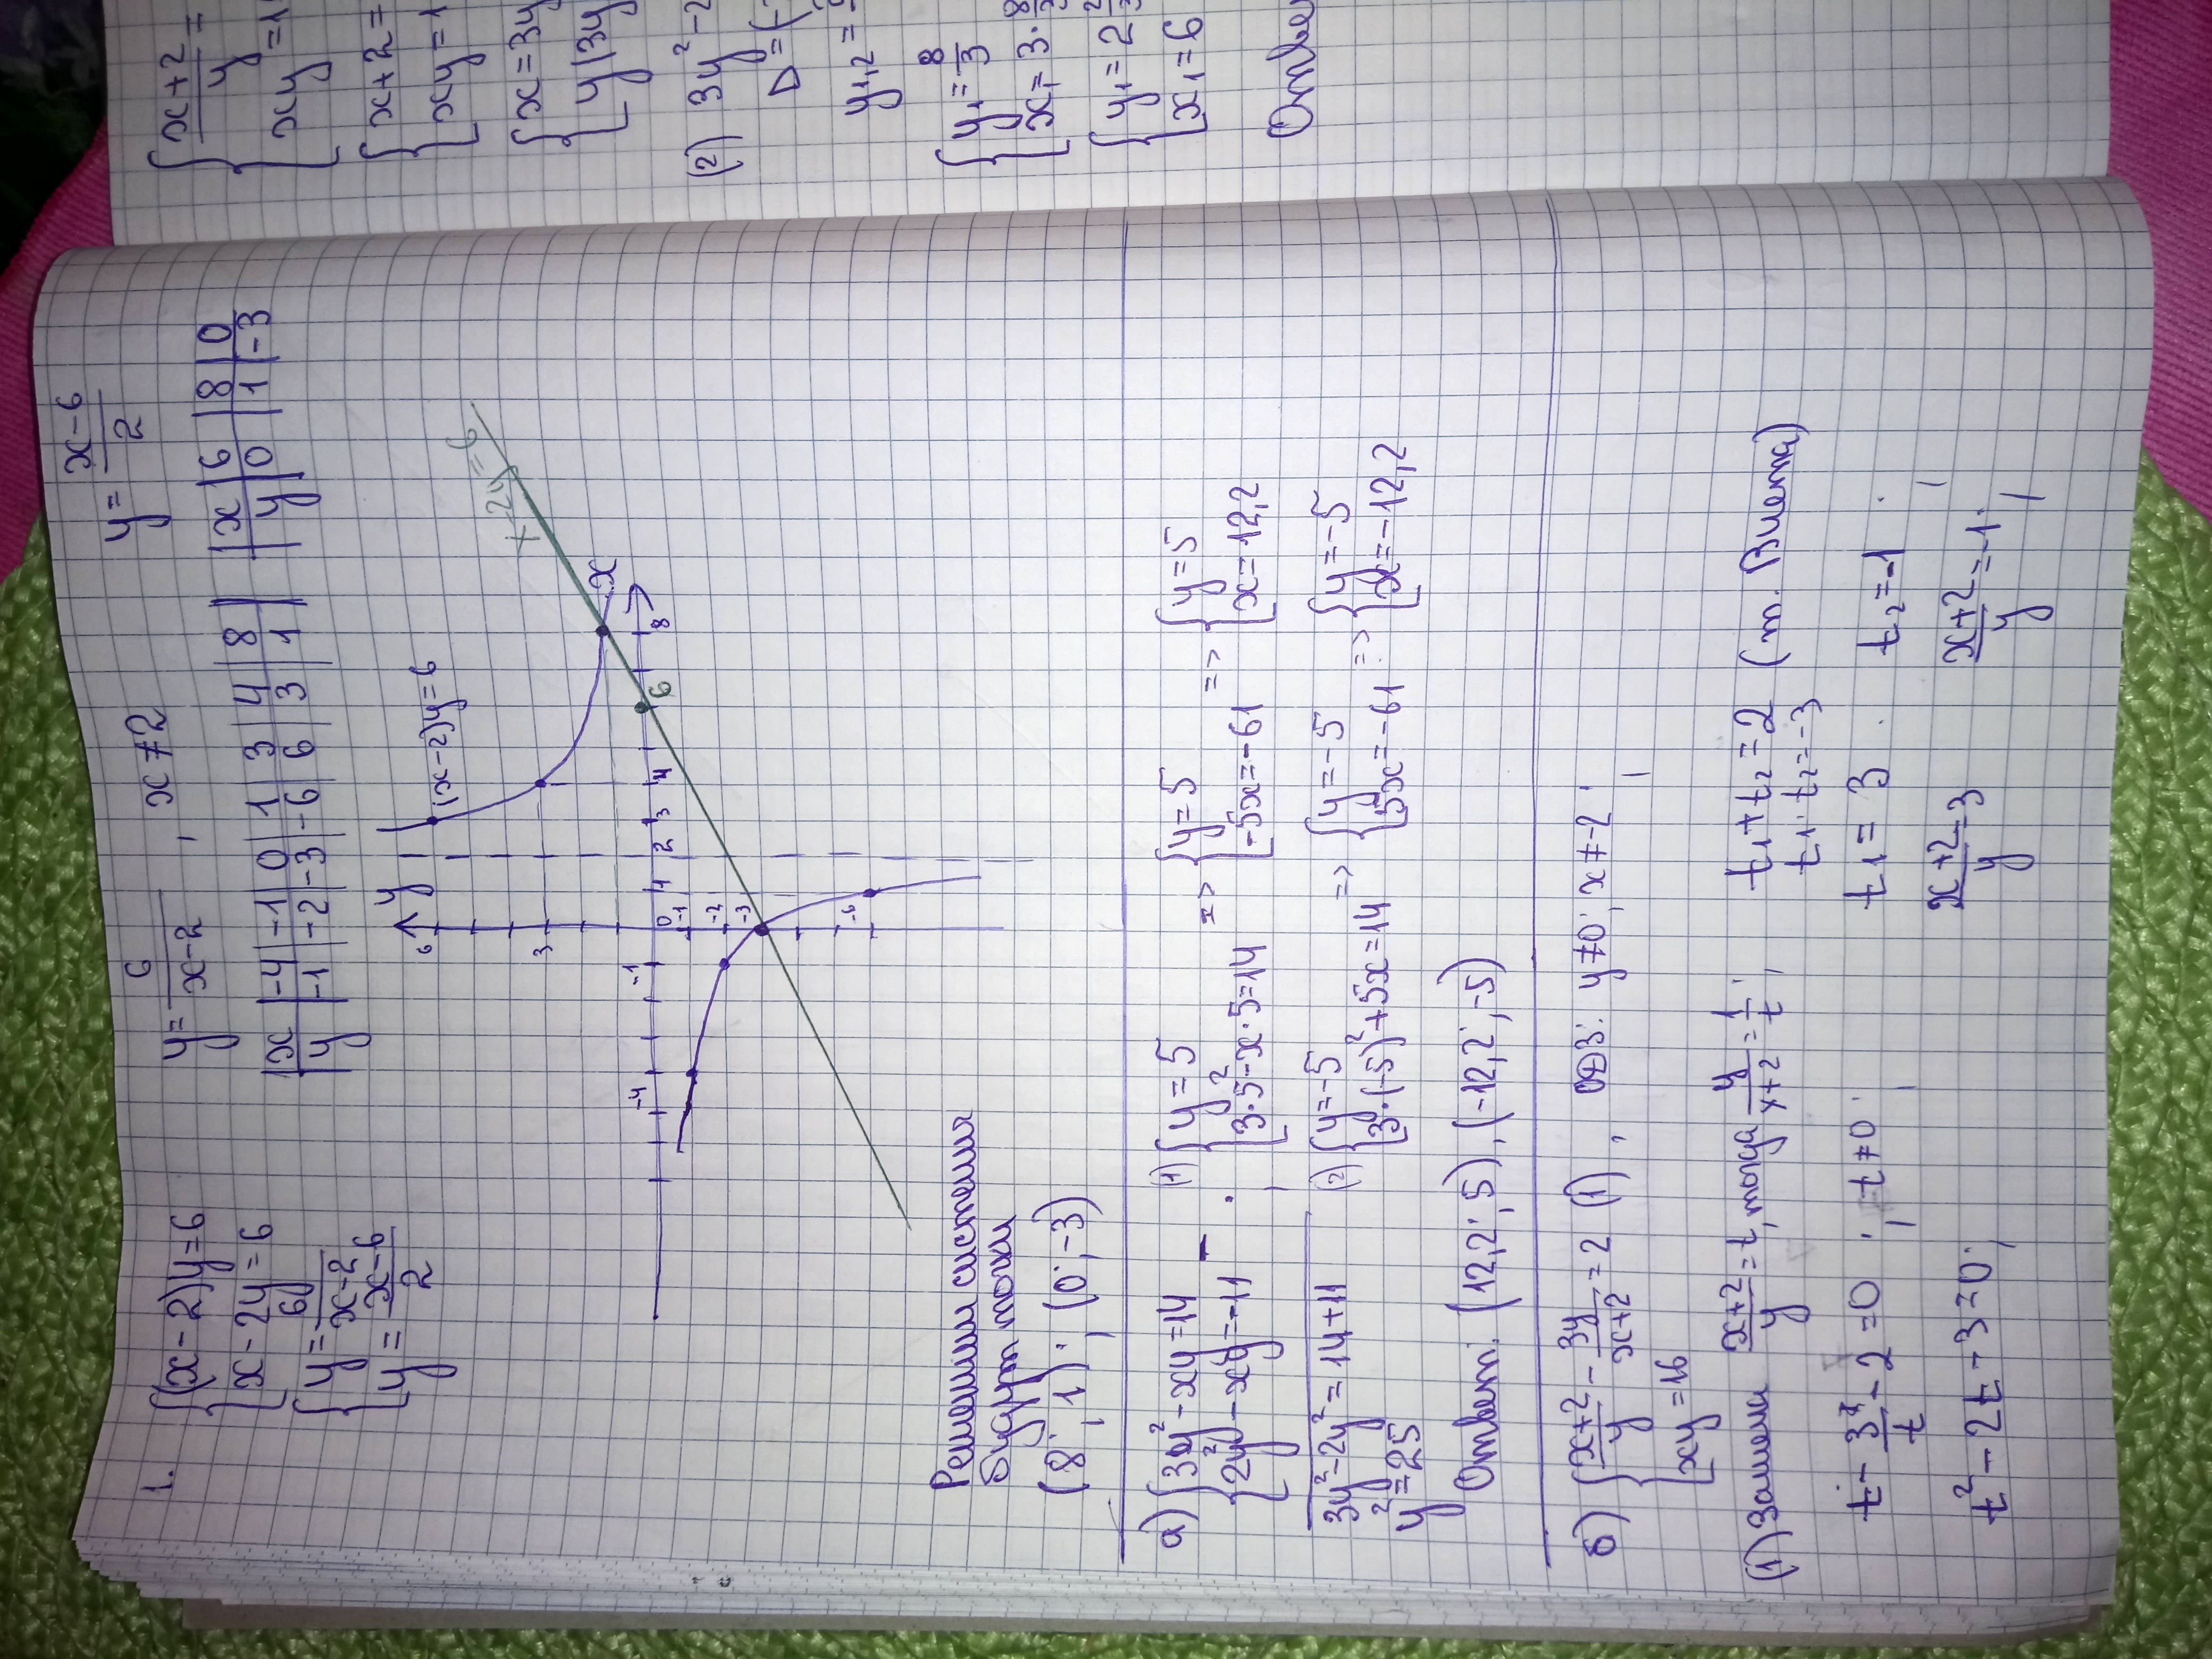 1. {(x-2)y=6
x-2y=6
{y=6/(x-2)
y=(x-6)/2
y=6/(x-2), x≠2
x | -4 | -1 | 0 | 1 | 3 | 4 | 8
y | -1 | -2 | -3 | -6 | 6 | 3 | 1
y=(x-6)/2
x | 6 | 8 | 0
y | 0 | 1 | -3
y
6
(x-2)y=6
x-2y=6
3
x
-4 -1 0 1 2 3 4 6 8
-1
-2
-3
-6
Решения системы
будут точки
(8; 1); (0; -3)
а) {3y²-xy=14
2y²-xy=-11
3y²-2y²=14+11
y²=25
(1) {y=5
3·5²-x·5=14
=> {y=5
-5x=-61
=> {y=5
x=12,2
(2) {y=-5
3·(-5)²+5x=14
=> {y=-5
5x=-61
=> {y=-5
x=-12,2
Ответ: (12,2; 5), (-12,2; -5)
б) {(x+2)/y - 3y/(x+2) = 2 (1), ОДЗ: y≠0; x≠-2;
xy=16
(1) Замена (x+2)/y=t, тогда y/(x+2)=1/t;
t - 3/t - 2=0; t≠0;
t²-2t-3=0;
t₁+t₂=2
t₁·t₂=-3
(т. Виета)
t₁=3 t₂=-1
(x+2)/y=3 (x+2)/y=-1;
{(x+2)/y=
{x+2=
xy=1
{x=3y
y(3y
(2) 3y²-2
D=(-
y₁,₂=
{y₁=8/3
x₁=3·8
{y₁=2
x₁=6